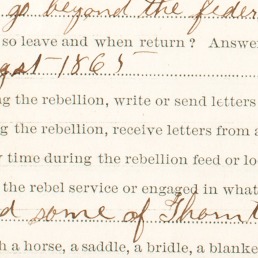 go beyond the feder
so leave and when return? Answe
gust 1865
ng the rebellion, write or send letters
ng the rebellion, receive letters from a
y time during the rebellion feed or lo
the rebel service or engaged in what
d some of Thornt
h a horse, a saddle, a bridle, a blanke